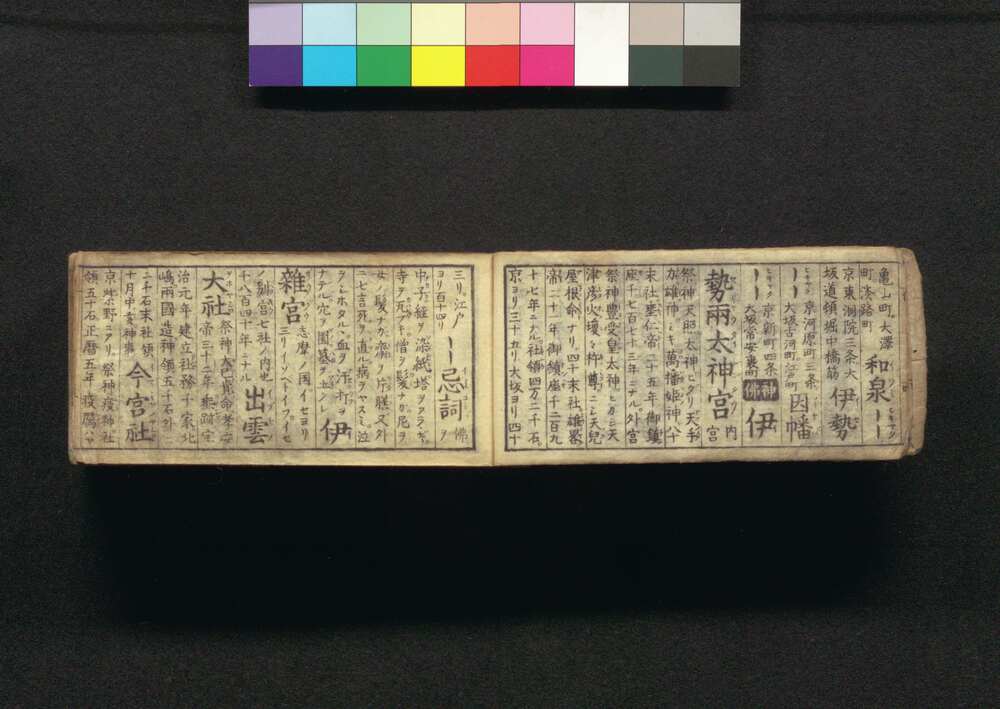 亀山町大澤
町湊路町 和泉
京東洞院三条大
坂道頓堀中橋筋 伊勢
京河原町三条
大坂古河町 因幡
京新町四条
大坂常安裏町 神佛 伊
勢兩太神宮 内宮
祭神天照太神ヒタリ天手
力雄神ミキ萬幡姫神八十
末社垂仁帝二十五年御鎮
座千七百七十三年ニナル外宮
祭神豊受皇太神ヒタリ天
津彦火瓊々杵尊ミキ天児
屋根命ナリ四十末社雄畧
帝二十一年御鎮座千二百九
十七年ニナル社領四万二千石
京ヨリ三十五リ大坂ヨリ四十
三リ江戸
ヨリ百十四リ 忌詞 佛ヲ
中子経ヲ染紙塔ヲアラヽギ
寺ヲ瓦ブキ僧ヲ髪ナガ尼ヲ
女ノ髪ナガ斎ヲ片膳又外
ニ七言死ヲ直ル病ヲヤスミ泣
ヲシホタルヽ血ヲ汗打ヲ
ナデル宍ヲ菌墓ヲ土クレ 伊
雜宮 志摩ノ国イセヨリ
三リイソベイフイセ
ノ別宮七社ノ内也
千八百四十年ニナル 出雲
大社 祭神大己貴命孝安
帝三十二年垂跡定
治元年建立社務千家北
嶋兩國造神領五千石外
二千石末社領
十月中寺神事 今宮社
京紫野ニアリ祭神疫神社
領五十石正暦五年疫厲ハヤ